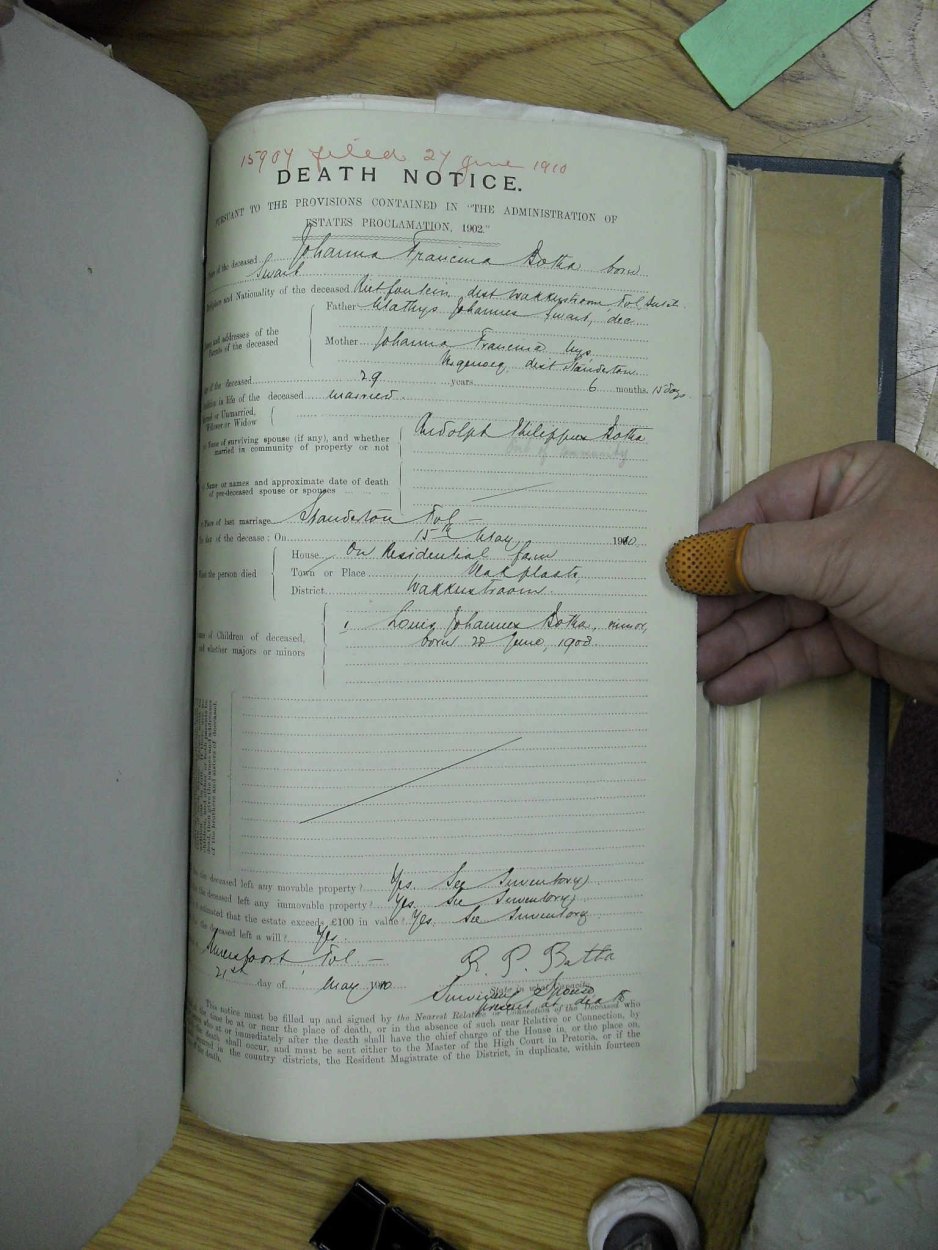 15907 filed 27 June 1910
DEATH NOTICE.
PURSUANT TO THE PROVISIONS CONTAINED IN "THE ADMINISTRATION OF
ESTATES PROCLAMATION, 1902."
of the deceased Johanna Francina Botha born
Swart
and Nationality of the deceased dist Wakkerstroom Tvl
Father Mathys Johannes Swart, dec
and addresses of the
Parents of the deceased
Mother Johanna Francina
dist Standerton
of the deceased 29 years 6 months 15 days
in life of the deceased married
or Unmarried,
Widower or Widow
Name of surviving spouse (if any), and whether
married in community of property or not
Rudolph Philippus Botha
out of Community
Name or names and approximate date of death
of pre-deceased spouse or spouses
Place of last marriage Standerton Tvl
day of the decease: On 15th May 1910
House On Residential farm
the person died
Town or Place Vlakplaats
District Wakkerstroom
1 Louis Johannes Botha, minor,
of Children of deceased,
whether majors or minors
born 28 June, 1908
the deceased left any movable property? Yes. See Inventory
the deceased left any immovable property? Yes. See Inventory
estimated that the estate exceeds £100 in value? Yes. See Inventory
the deceased left a will? Yes.
Amersfoort, Tvl
R. P. Botha
21st day of May 1910
Surviving Spouse
present at death
This notice must be filled up and signed by the Nearest Relative or Connection of the Deceased who
time be at or near the place of death, or in the absence of such near Relative or Connection, by
who at or immediately after the death shall have the chief charge of the House in, or the place on,
death shall occur, and must be sent either to the Master of the High Court in Pretoria, or if the
in the country districts, the Resident Magistrate of the District, in duplicate, within fourteen
death.